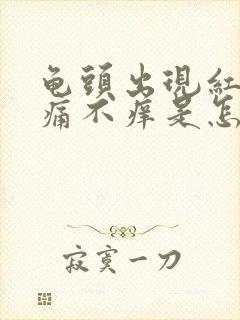 龟頭出現紅
痛不痒是怎
寂寞一刀